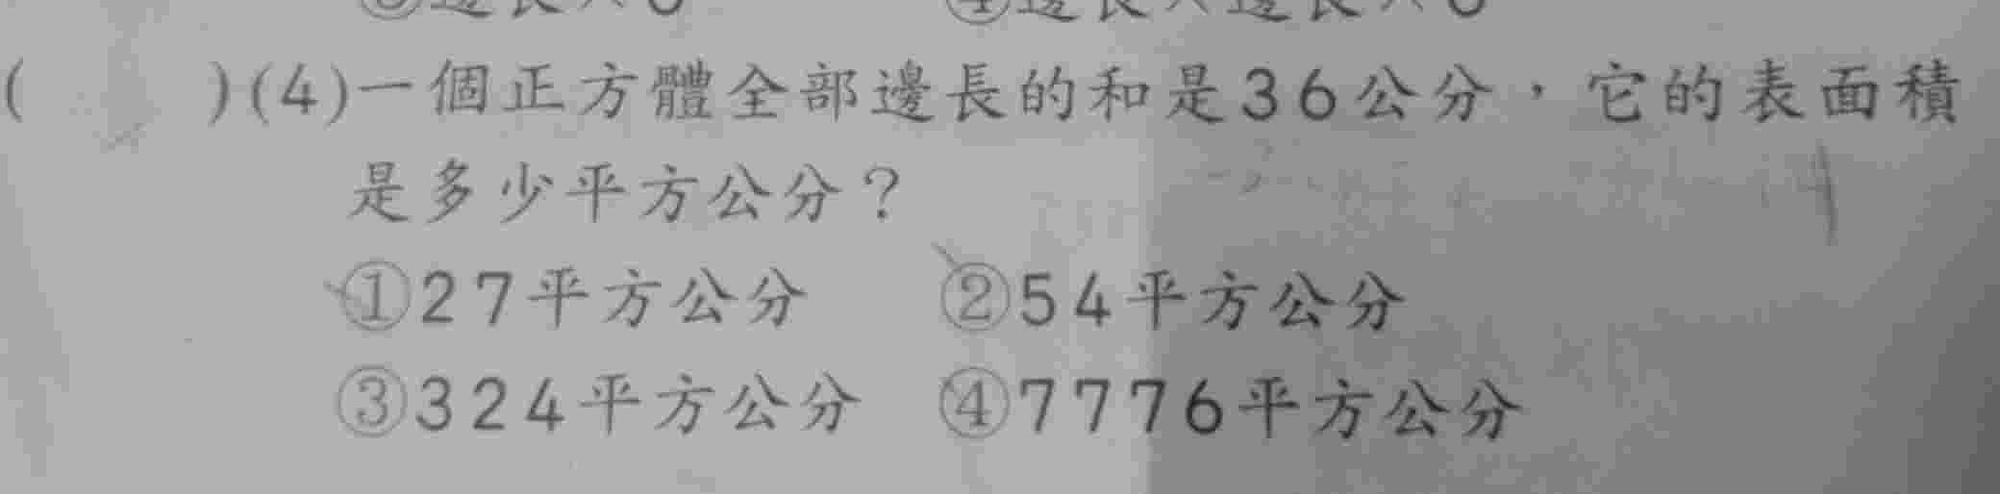 ③邊長×6 ④邊長×邊長×6
( )(4)一個正方體全部邊長的和是36公分，它的表面積
是多少平方公分？
①27平方公分 ②54平方公分
③324平方公分 ④7776平方公分